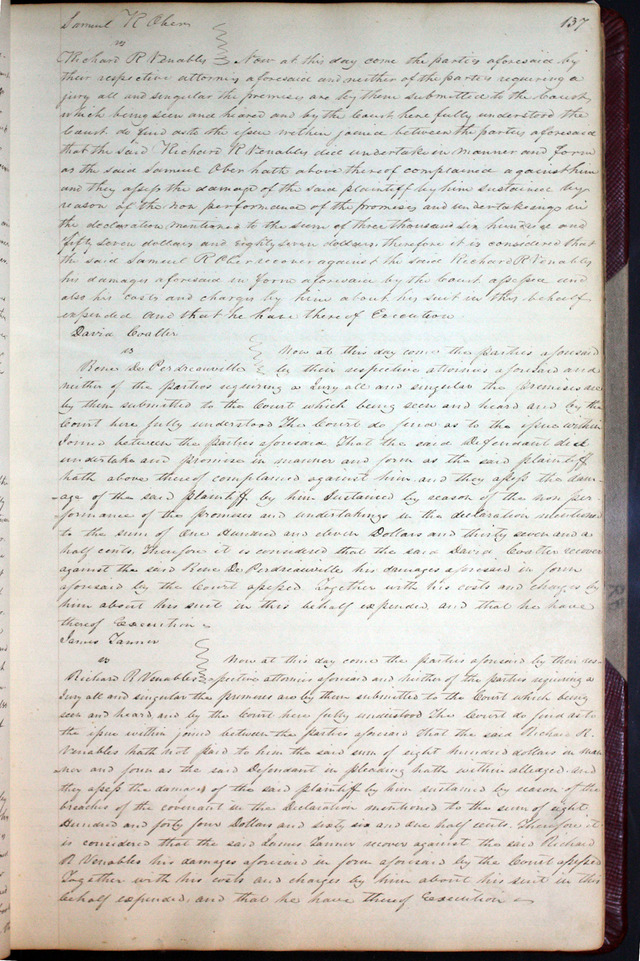 Samuel R Ober 137
vs
Richard R Venables Now at this day come the parties aforesaid by
their respective attornies aforesaid and neither of the parties requiring a
jury all and singular the premises are by them submitted to the Court
which being seen and heard and by the Court here fully understood the
Court do find as to the issue within joined between the parties aforesaid
that the said Richard R Venables did undertake in manner and form
as the said Samuel Ober hath above thereof complained against him
and they assess the damage of the said plaintiff by him sustained by
reason of the non performance of the promises and undertakings in
the declaration mentioned to the sum of three thousand six hundred and
fifty seven dollars and eighty seven dollars therefore it is considered that
the said Samuel R Ober recover against the said Richard R Venables
his damages aforesaid in form aforesaid by the Court assessed and
also his costs and charges by him about his suit in this behalf
expended and that he have thereof Execution
David Coalter
vs
Now at this day come the parties aforesaid
Rene De Perdreauville by their respective attornies aforesaid and
neither of the parties requiring a Jury all and singular the premises are
by them submitted to the Court which being seen and heard and by the
Court here fully understood The Court do find as to the issue within
Joined between the Parties aforesaid That the said Defendant did
undertake and Promise in manner and form as the said plaintiff
hath above thereof complained against him and they assess the dam-
-age of the said plaintiff by him Sustained by reason of the non per
-formance of the promises and undertakings in the declaration mentioned
to the sum of One Hundred and eleven Dollars and thirty seven and a
half cents. Therefore it is considered that the said David Coalter recover
against the said Rene De Perdreauville his damages aforesaid in form
aforesaid by the Court assessed Together with his costs and charges by
him about his suit in this behalf expended and that he have
thereof Execution
James Tanner
vs Now at this day come the parties aforesaid by their res-
Richard R Venables pective attornies aforesaid and neither of the parties requiring a
Jury all and singular the premises are by them submitted to the Court which being
seen and heard and by the Court here fully understood The Court do find as to
the issue within joined between the parties aforesaid that the said Richard R.
Venables hath not paid to him the said sum of eight hundred dollars in man
ner and form as the said Defendant in pleading hath within alledged and
they assess the damages of the said plaintiff by him sustained by reason of the
breaches of the covenant in the Declaration mentioned to the sum of eight
Hundred and forty four Dollars and sixty six and one half cents. Therefore it
is considered that the said James Tanner recover against the said Richard
R Venables his damages aforesaid in form aforesaid by the Court assessed
Together with his costs and charges by him about his suit in this
behalf expended, and that he have thereof Execution